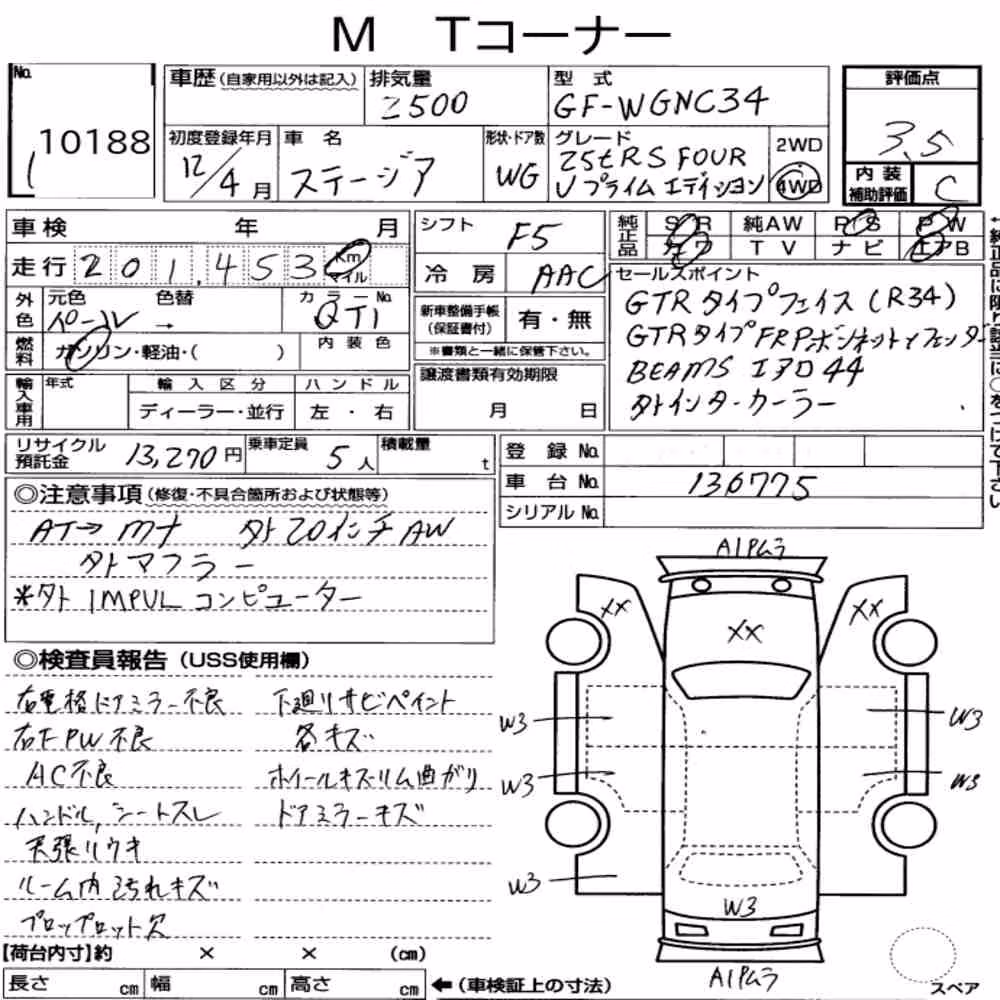 M Tコーナー
No. 10188
車歴(自家用以外は記入)
排気量 2500
型式 GF-WGNC34
評価点 3.5
初度登録年月 12/4月
車名 ステージア
形状・ドア数 WG
グレード 25tRS FOUR
Vプライム エディション
2WD
4WD
内装補助評価 C
車検 年 月
シフト F5
純正品 SR 純AW PS PW
カワ TV ナビ エアB
走行 201,453 Km マイル
冷房 AAC
セールスポイント
GTRタイプフェイス(R34)
GTRタイプFRPボンネットフェンダー
BEAMS エアロ44
タトインタークーラー
外色 元色 色替 カラーNo.
パール → QT1
燃料 ガソリン・軽油・( ) 内装色
新車整備手帳(保証書付) 有・無
※書類と一緒に保管下さい。
輸入車用 年式 輸入区分 ハンドル
ディーラー・並行 左・右
譲渡書類有効期限
月 日
←純正品に限り該当に○をつけて下さい
リサイクル預託金 13,270円
乗車定員 5人
積載量 t
登録No.
車台No. 136775
シリアルNo.
◎注意事項(修復・不具合箇所および状態等)
AT→Mナ タト20インチAW
タトマフラー
*タト IMPUL コンピューター
◎検査員報告(USS使用欄)
右電格ドアミラー不良
右F PW不良
AC不良
ハンドル,シートスレ
天張りウキ
ルーム内汚れキズ
下廻りサビペイント
各キズ
ホイールキズリム曲がり
ドアミラーキズ
A1Pムラ
XX
XX
XX
W3
W3
W3
W3
W3
W3
A1Pムラ
スペア
【荷台内寸】約 × × (cm)
長さ cm 幅 cm 高さ cm ←(車検証上の寸法)